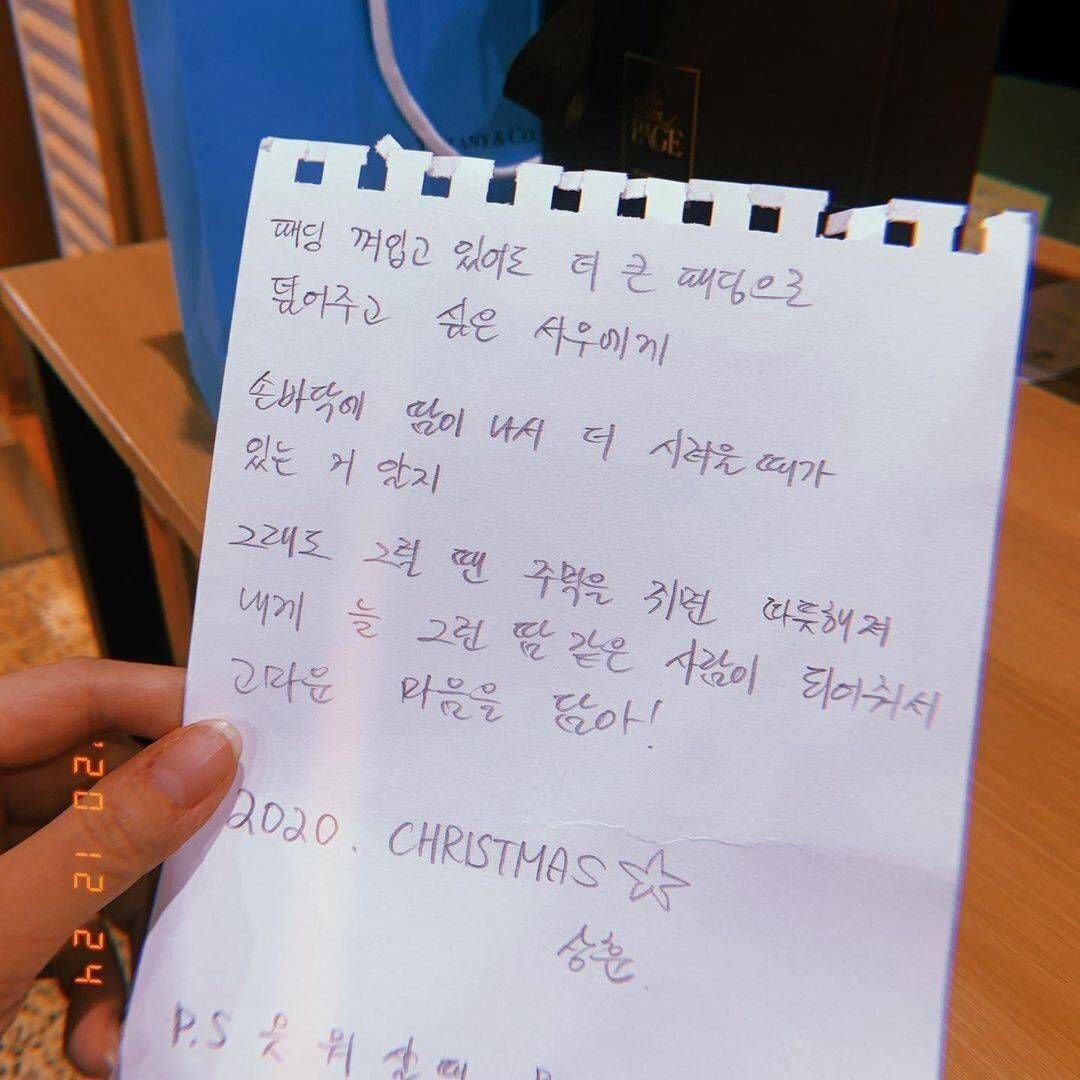 ANY & CO.
PAGE
패딩 껴입고 있어도 더 큰 패딩으로
덮어주고 싶은 사우에게
손바닥에 땀이 나서 더 시려울 때가
있는 거 알지
그래도 그럴 땐 주먹을 쥐면 따뜻해져
내게 늘 그런 땀 같은 사람이 되어줘서
고마운 마음을 담아!
2020. CHRISTMAS ☆
상훈.
P.S 옷
'20 12 24